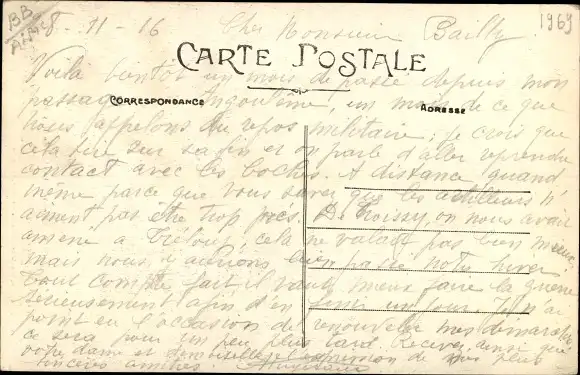 BB
1969
28-11-16 Cher Monsieur Bailly
CARTE POSTALE
CORRESPONDANCE
ADRESSE
Voilà bientôt un mois de passé depuis mon
passage Angoulême, un mois de ce que
nous appelons du repos militaire; je crois que
cela tire sur sa fin et on parle d'aller reprendre
contact avec les boches. A distance quand
même parce que vous savez que les artilleurs n'
aiment pas être trop près. De Roissy, on nous avait
amené à Tréloup, cela ne valait pas bien mieux
mais nous y aurions bien passé notre hiver
Tout compte fait il vaut mieux faire la guerre
sérieusement afin d'en finir un jour. Je n'ai
point eu l'occasion de renouveler mes démarches
ce sera pour un peu plus tard. Recevez ainsi que
votre dame et demoiselle l'expression de mes plus
sincères amitiés.